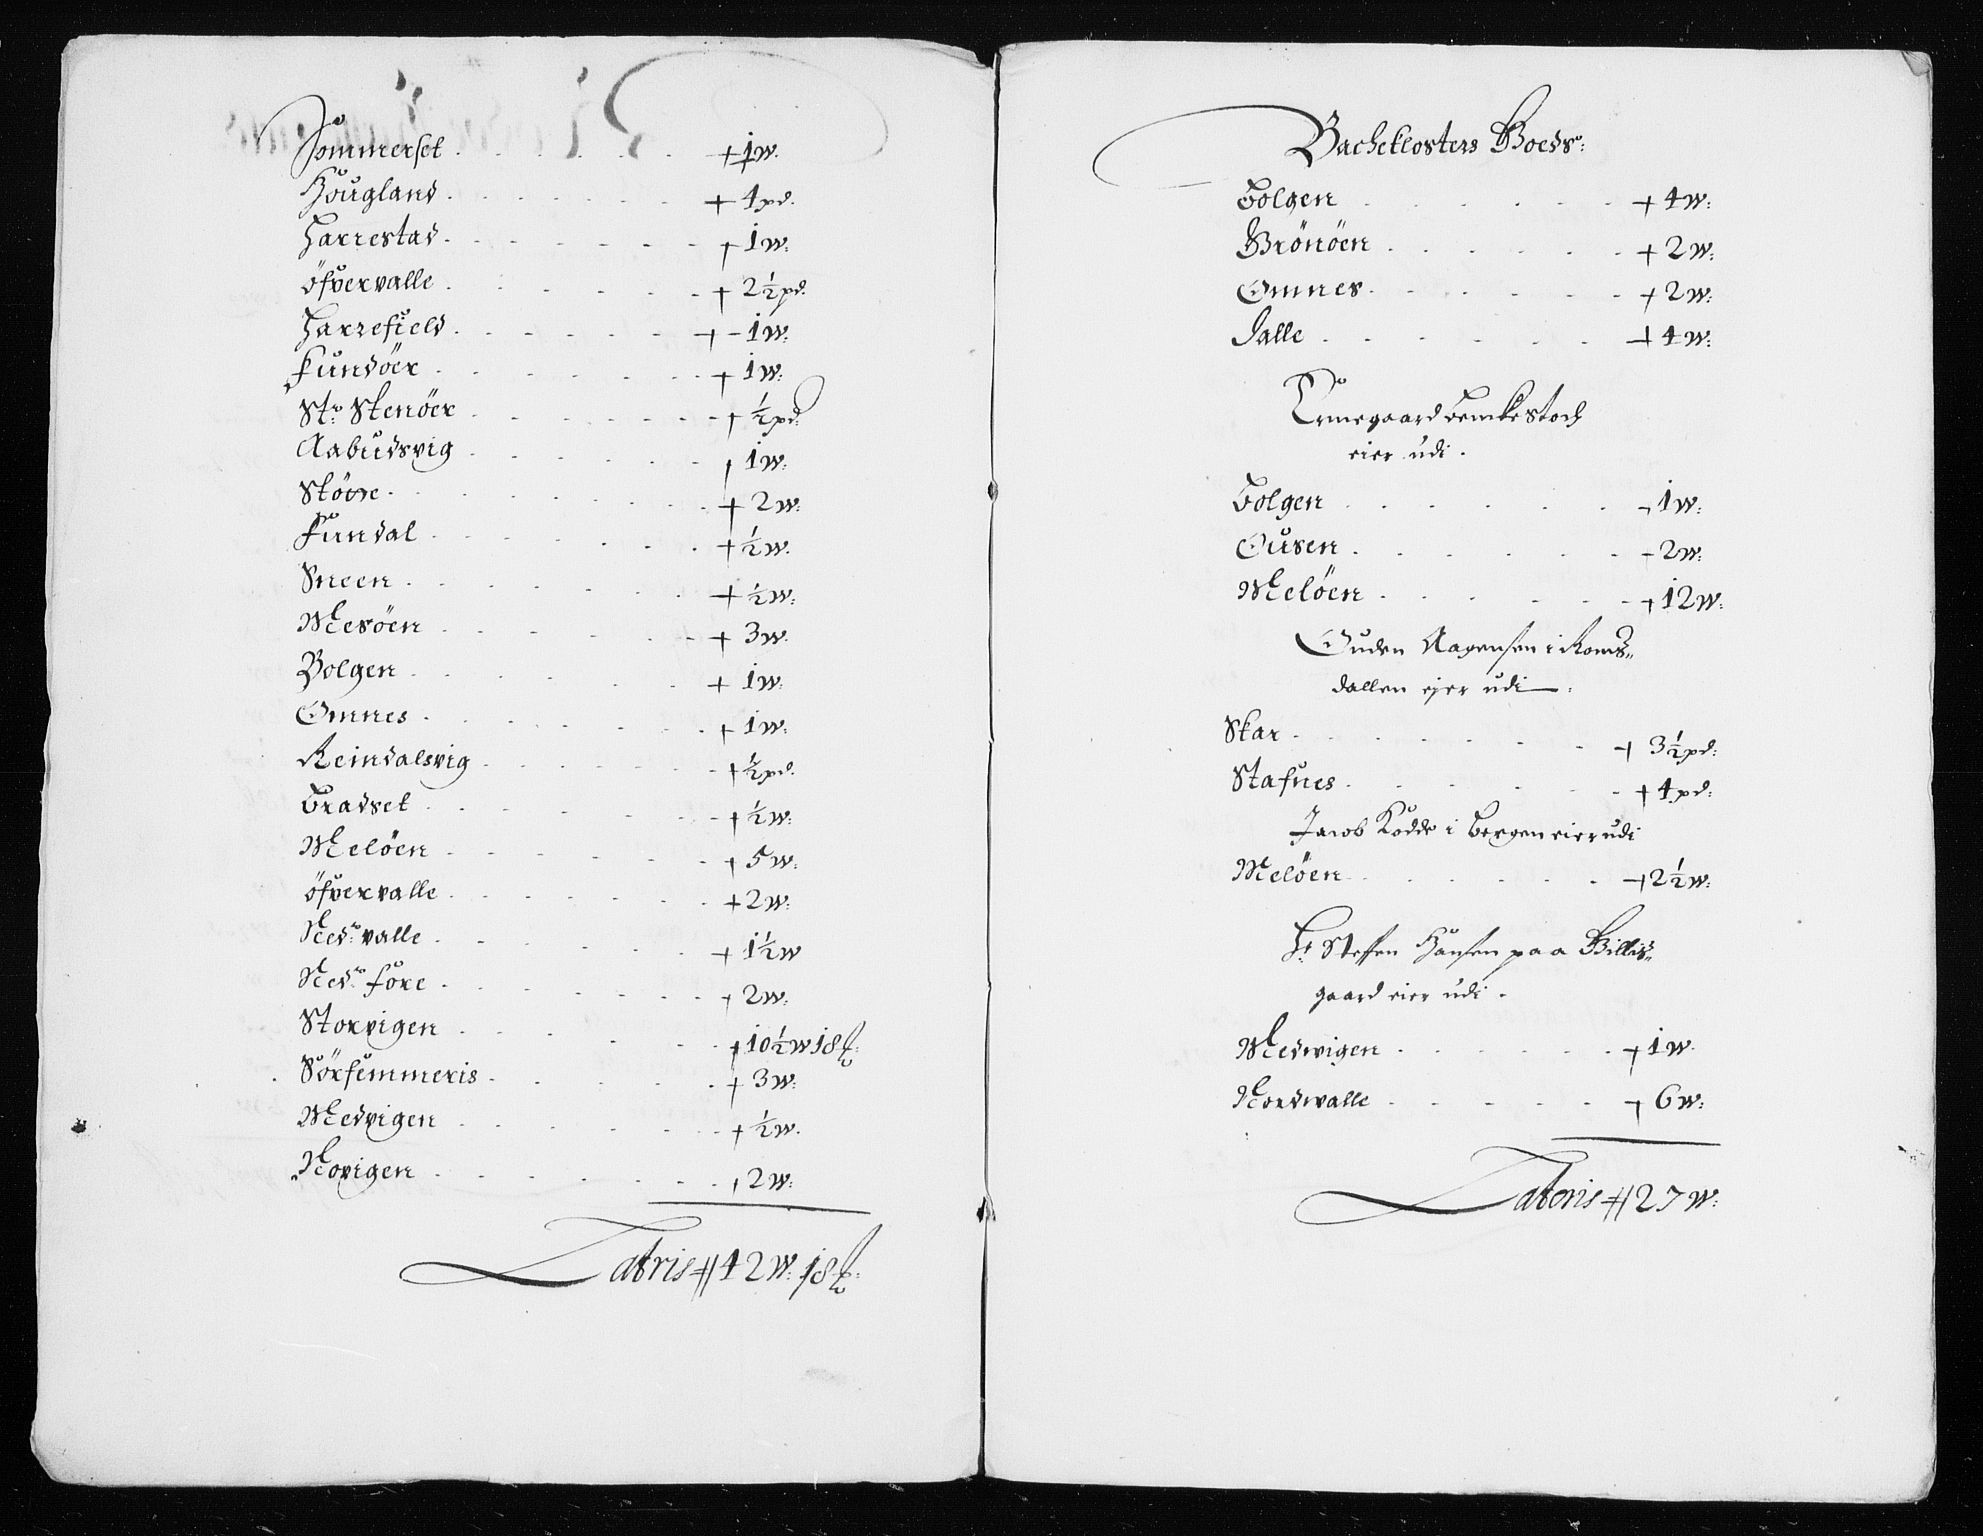 Sommerset + 1 w:
Hougland + 4 pd.
Harrestad + 1 w:
Öfvervalle + 2½ pd.
Harrefield + 1 w:
Fundöer + 1 w:
St: Stenöer + ½ pd:
Aabudsvig + 1 w:
Stöve + 2 w:
Fundal + ½ w.
Sneen + ½ w:
Mesöen + 3 w.
Bolgen + 1 w:
Omnes + 1 w:
Reindalsvig + ½ pd.
Bradset + ½ w:
Melöen + 5 w:
Öfvervalle + 2 w:
Ned: valle + 1½ w
Ned: före + 2 w:
Storvigen + 10½ w 18 ℔:
Sörfemmeris + 3 w:
Medvigen + ½ w.
Novigen + 2 w:
Latris # 42 w: 18 ℔:
Bacheklosters Goeds:
Bolgen + 4 w:
Brönöen + 2 w:
Omnes + 2 w:
Jalle + 4 w:
Ermegaard Benkestoch
eier udi.
Bolgen + 1 w:
Ousen - 2 w:
Melöen + 12 w:
Ouden Aagensen i Roms-
dallen ejer udi:
Skar + 3½ pd:
Stafnes + 4 pd:
Jacob Kodde i Bergen eier udi
Melöen + 2½ w:
Hr Steffen Hansen paa Gilles-
gaard eier udi.
Medwigen + 1 w.
Nordwalle + 6 w:
Lateris # 27 w: